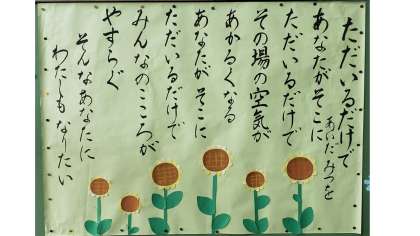 ただいるだけで
あいだみつを
あなたがそこに
ただいるだけで
その場の空気が
あかるくなる
あなたがそこに
ただいるだけで
みんなのこころが
やすらぐ
そんなあなたに
わたしもなりたい